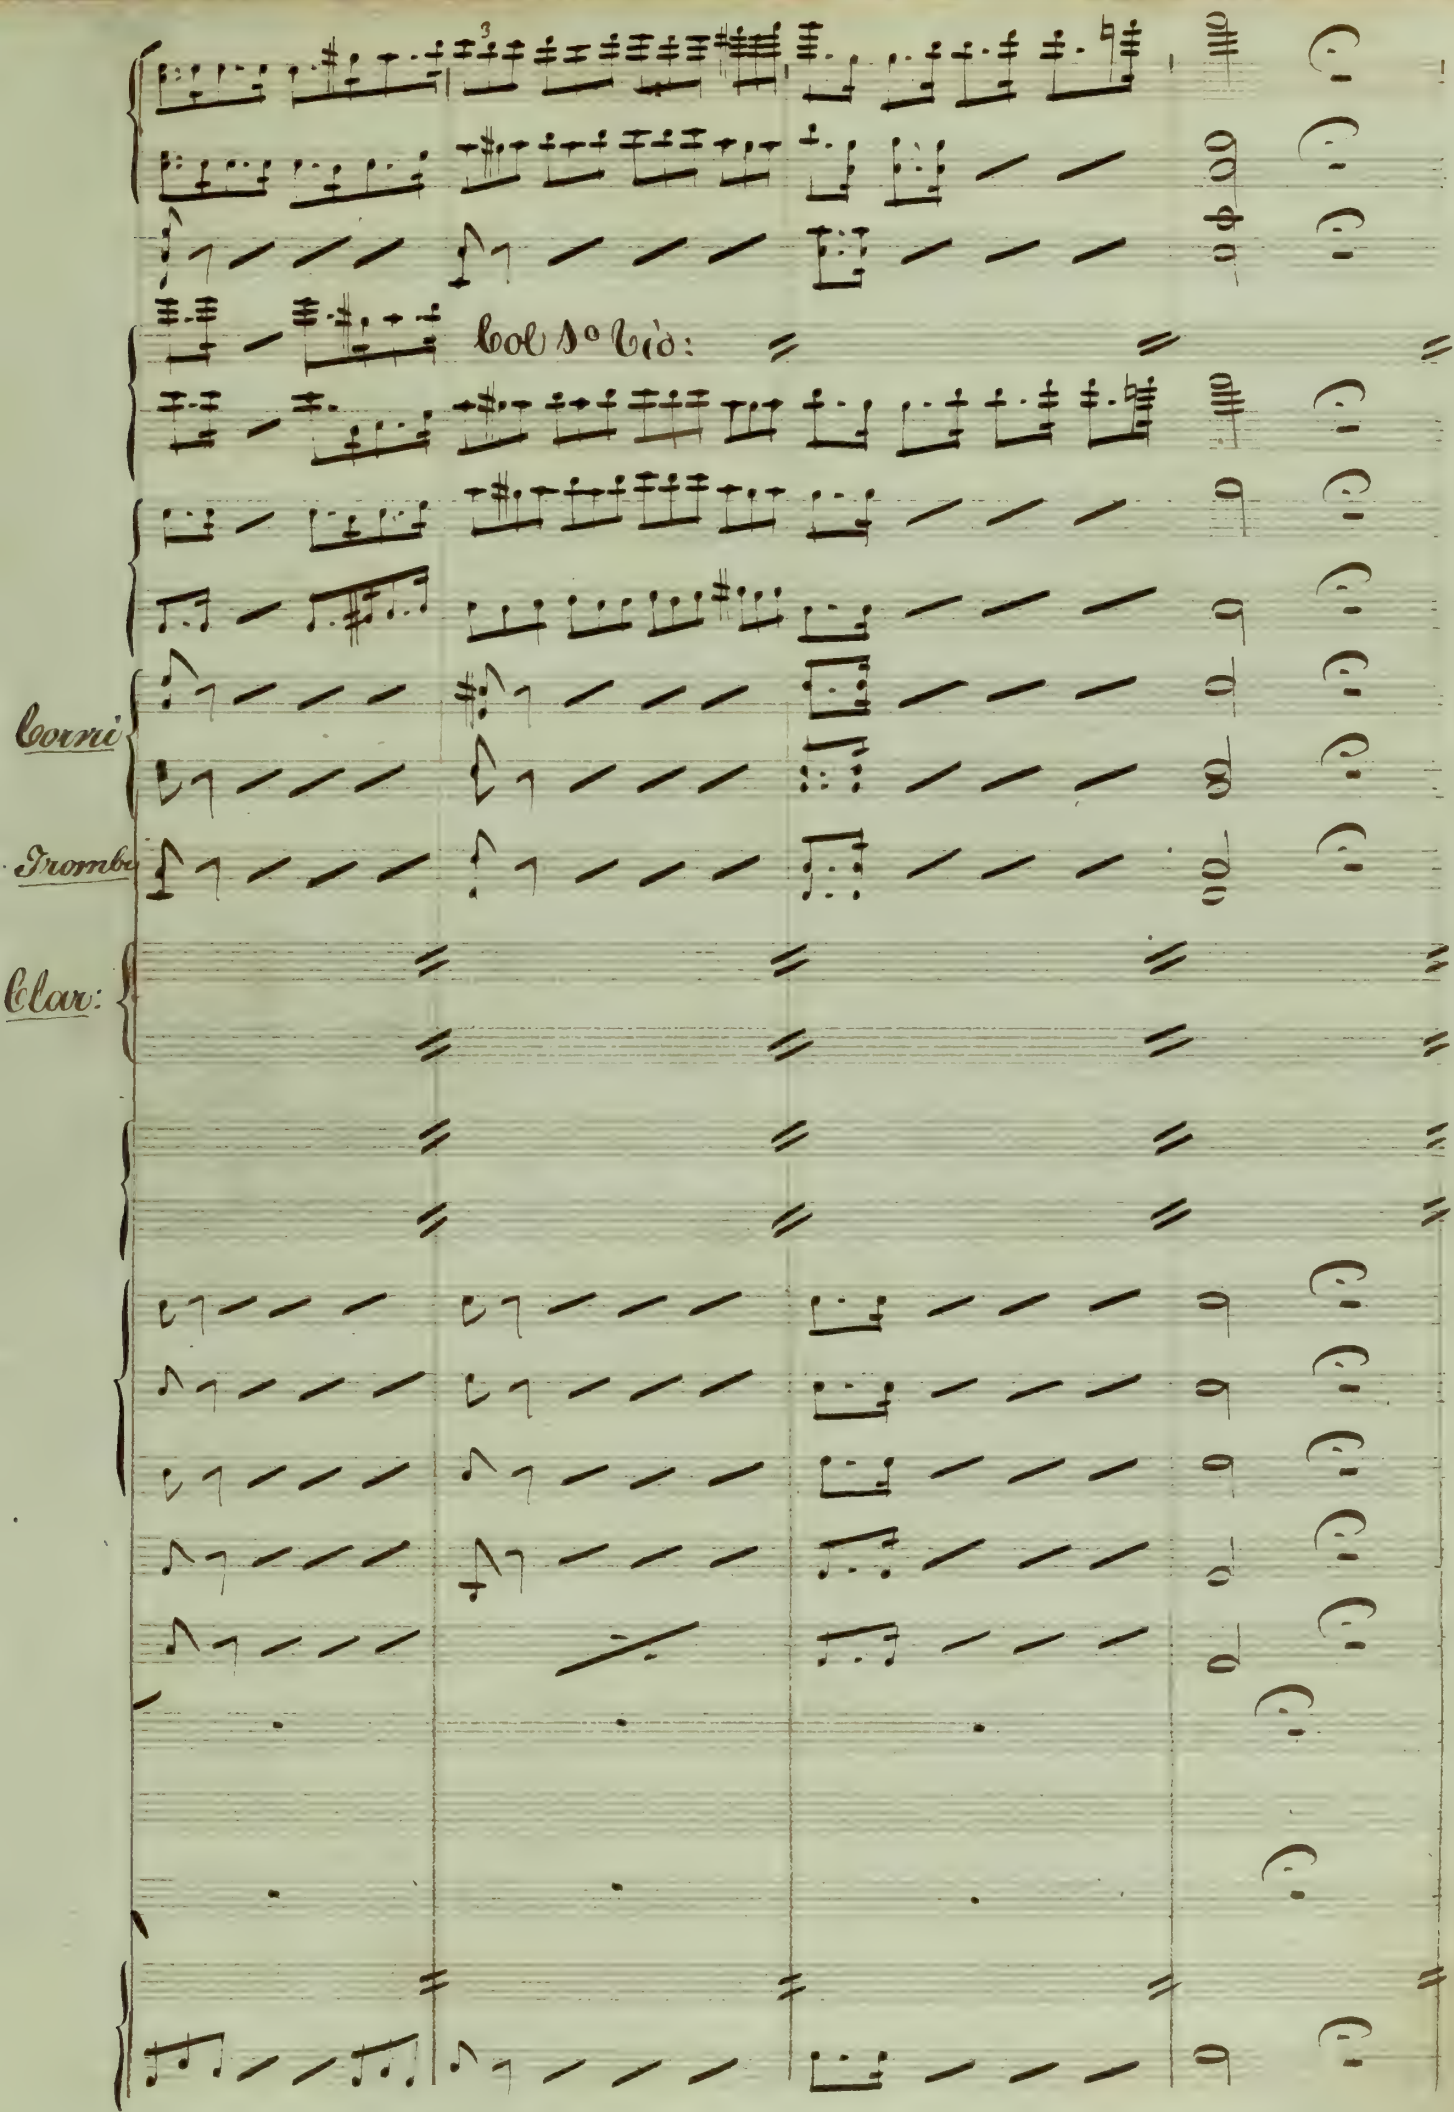 3
Col 1º Vio:
Corni
Trombe
Clar: